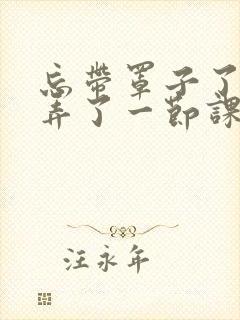 忘帶罩子了
弄了一節課
汪永年